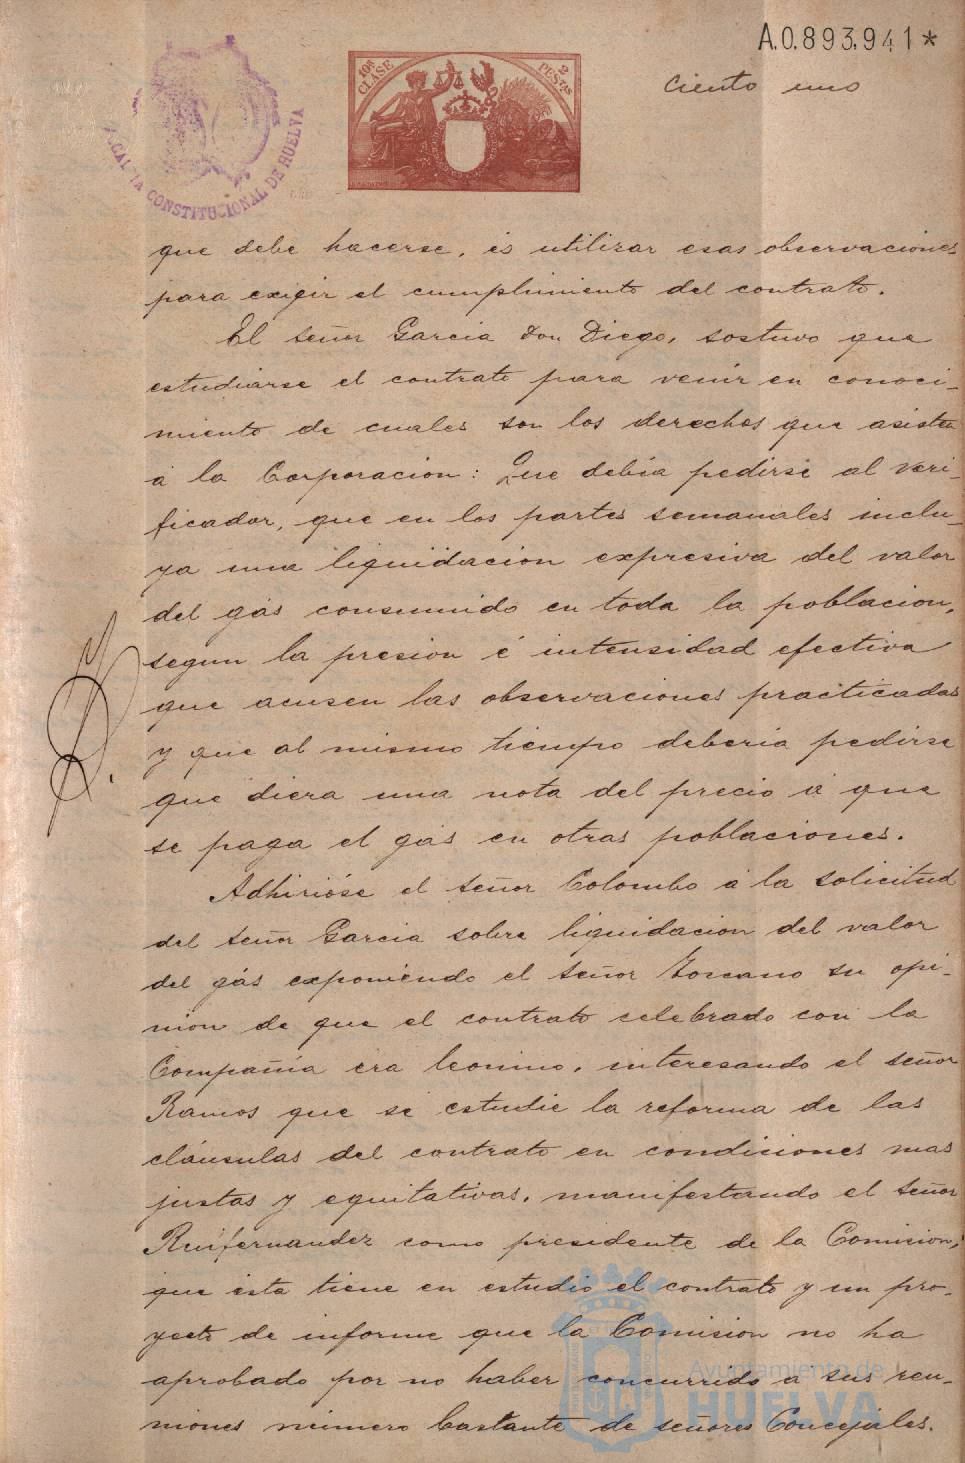 A.0.893.941*
10ª CLASE
2 PESTAS
ciento uno
ALCALDIA CONSTITUCIONAL DE HUELVA
que debe hacerse, és utilizar esas observaciones
para exigir el cumplimiento del contrato.
El señor Garcia Don Diego, sostuvo que
estudiarse el contrato para venir en conoci-
miento de cuales son los derechos que asisten
á la Corporacion: Que debia pedirse al veri-
ficador, que en los partes semanales inclu-
ya una liquidacion expresiva del valor
del gas consumido en toda la poblacion,
segun la presion é intensidad efectiva
que acusen las observaciones practicadas
y que al mismo tiempo deberia pedirse
que diera una nota del precio á que
se paga el gas en otras poblaciones.
Adhirióse el señor Colombo á la solicitud
del señor Garcia sobre liquidacion del valor
del gás exponiendo el señor Toscano su opi-
nion de que el contrato celebrado con la
Compañia era leonino, interesando el señor
Ramos que se estudie la reforma de las
cláusulas del contrato en condiciones mas
justas y equitativas, manifestando el señor
Ruifernandez como presidente de la Comision,
que ésta tiene en estudio el contrato y un pro-
yecto de informe que la Comision no ha
aprobado por no haber concurrido a sus reu-
niones número bastante de señores Concejales.
Ayuntamiento de
HUELVA